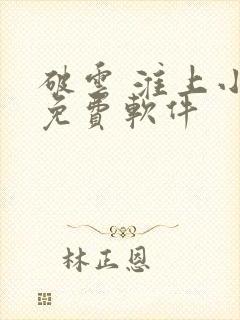 破雲 淮上小
免費軟件
林正恩